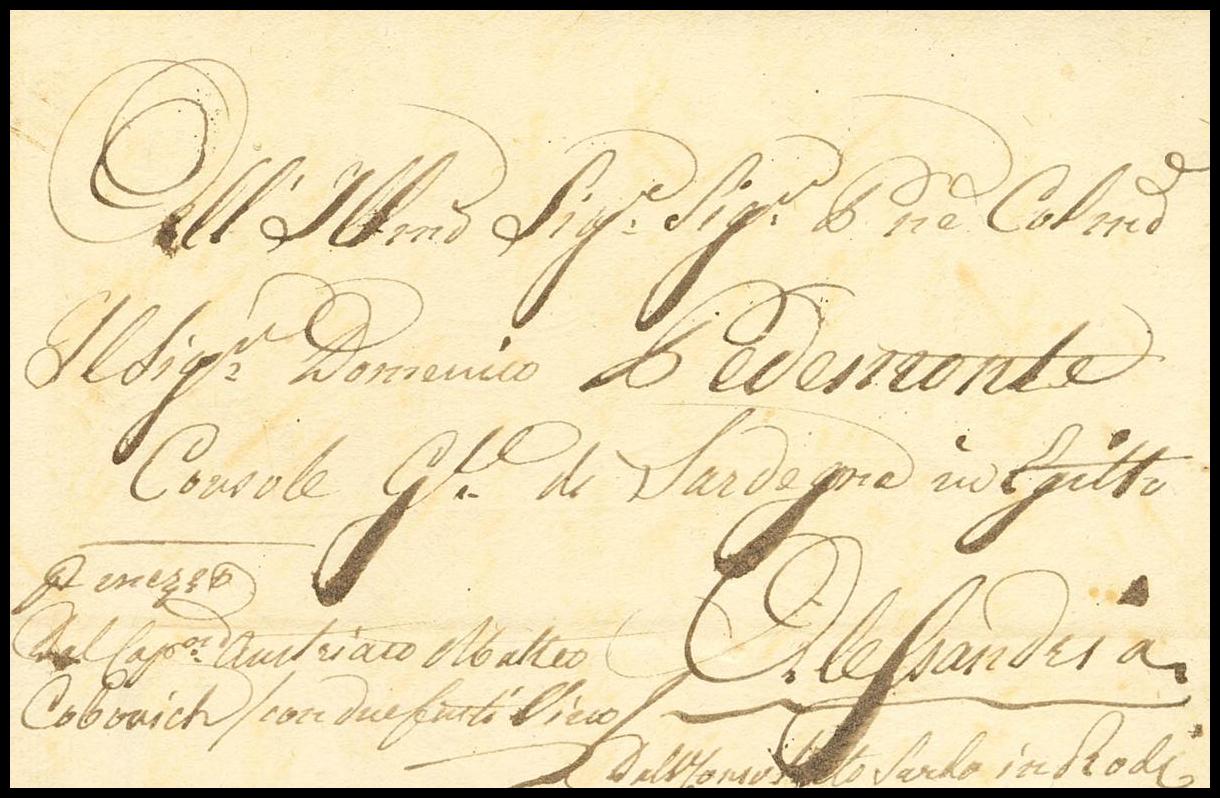 All' Illmo Sigre Sigr Pne Colmo
Il Sigr Domenico Pedemonte
Console Gle di Sardegna in Egitto
pr mezzo
Alessandria
Dal Capno Austriaco Matteo
Cobovich / con due fusti Vino /
Dal Consolato Sardo in Rodi